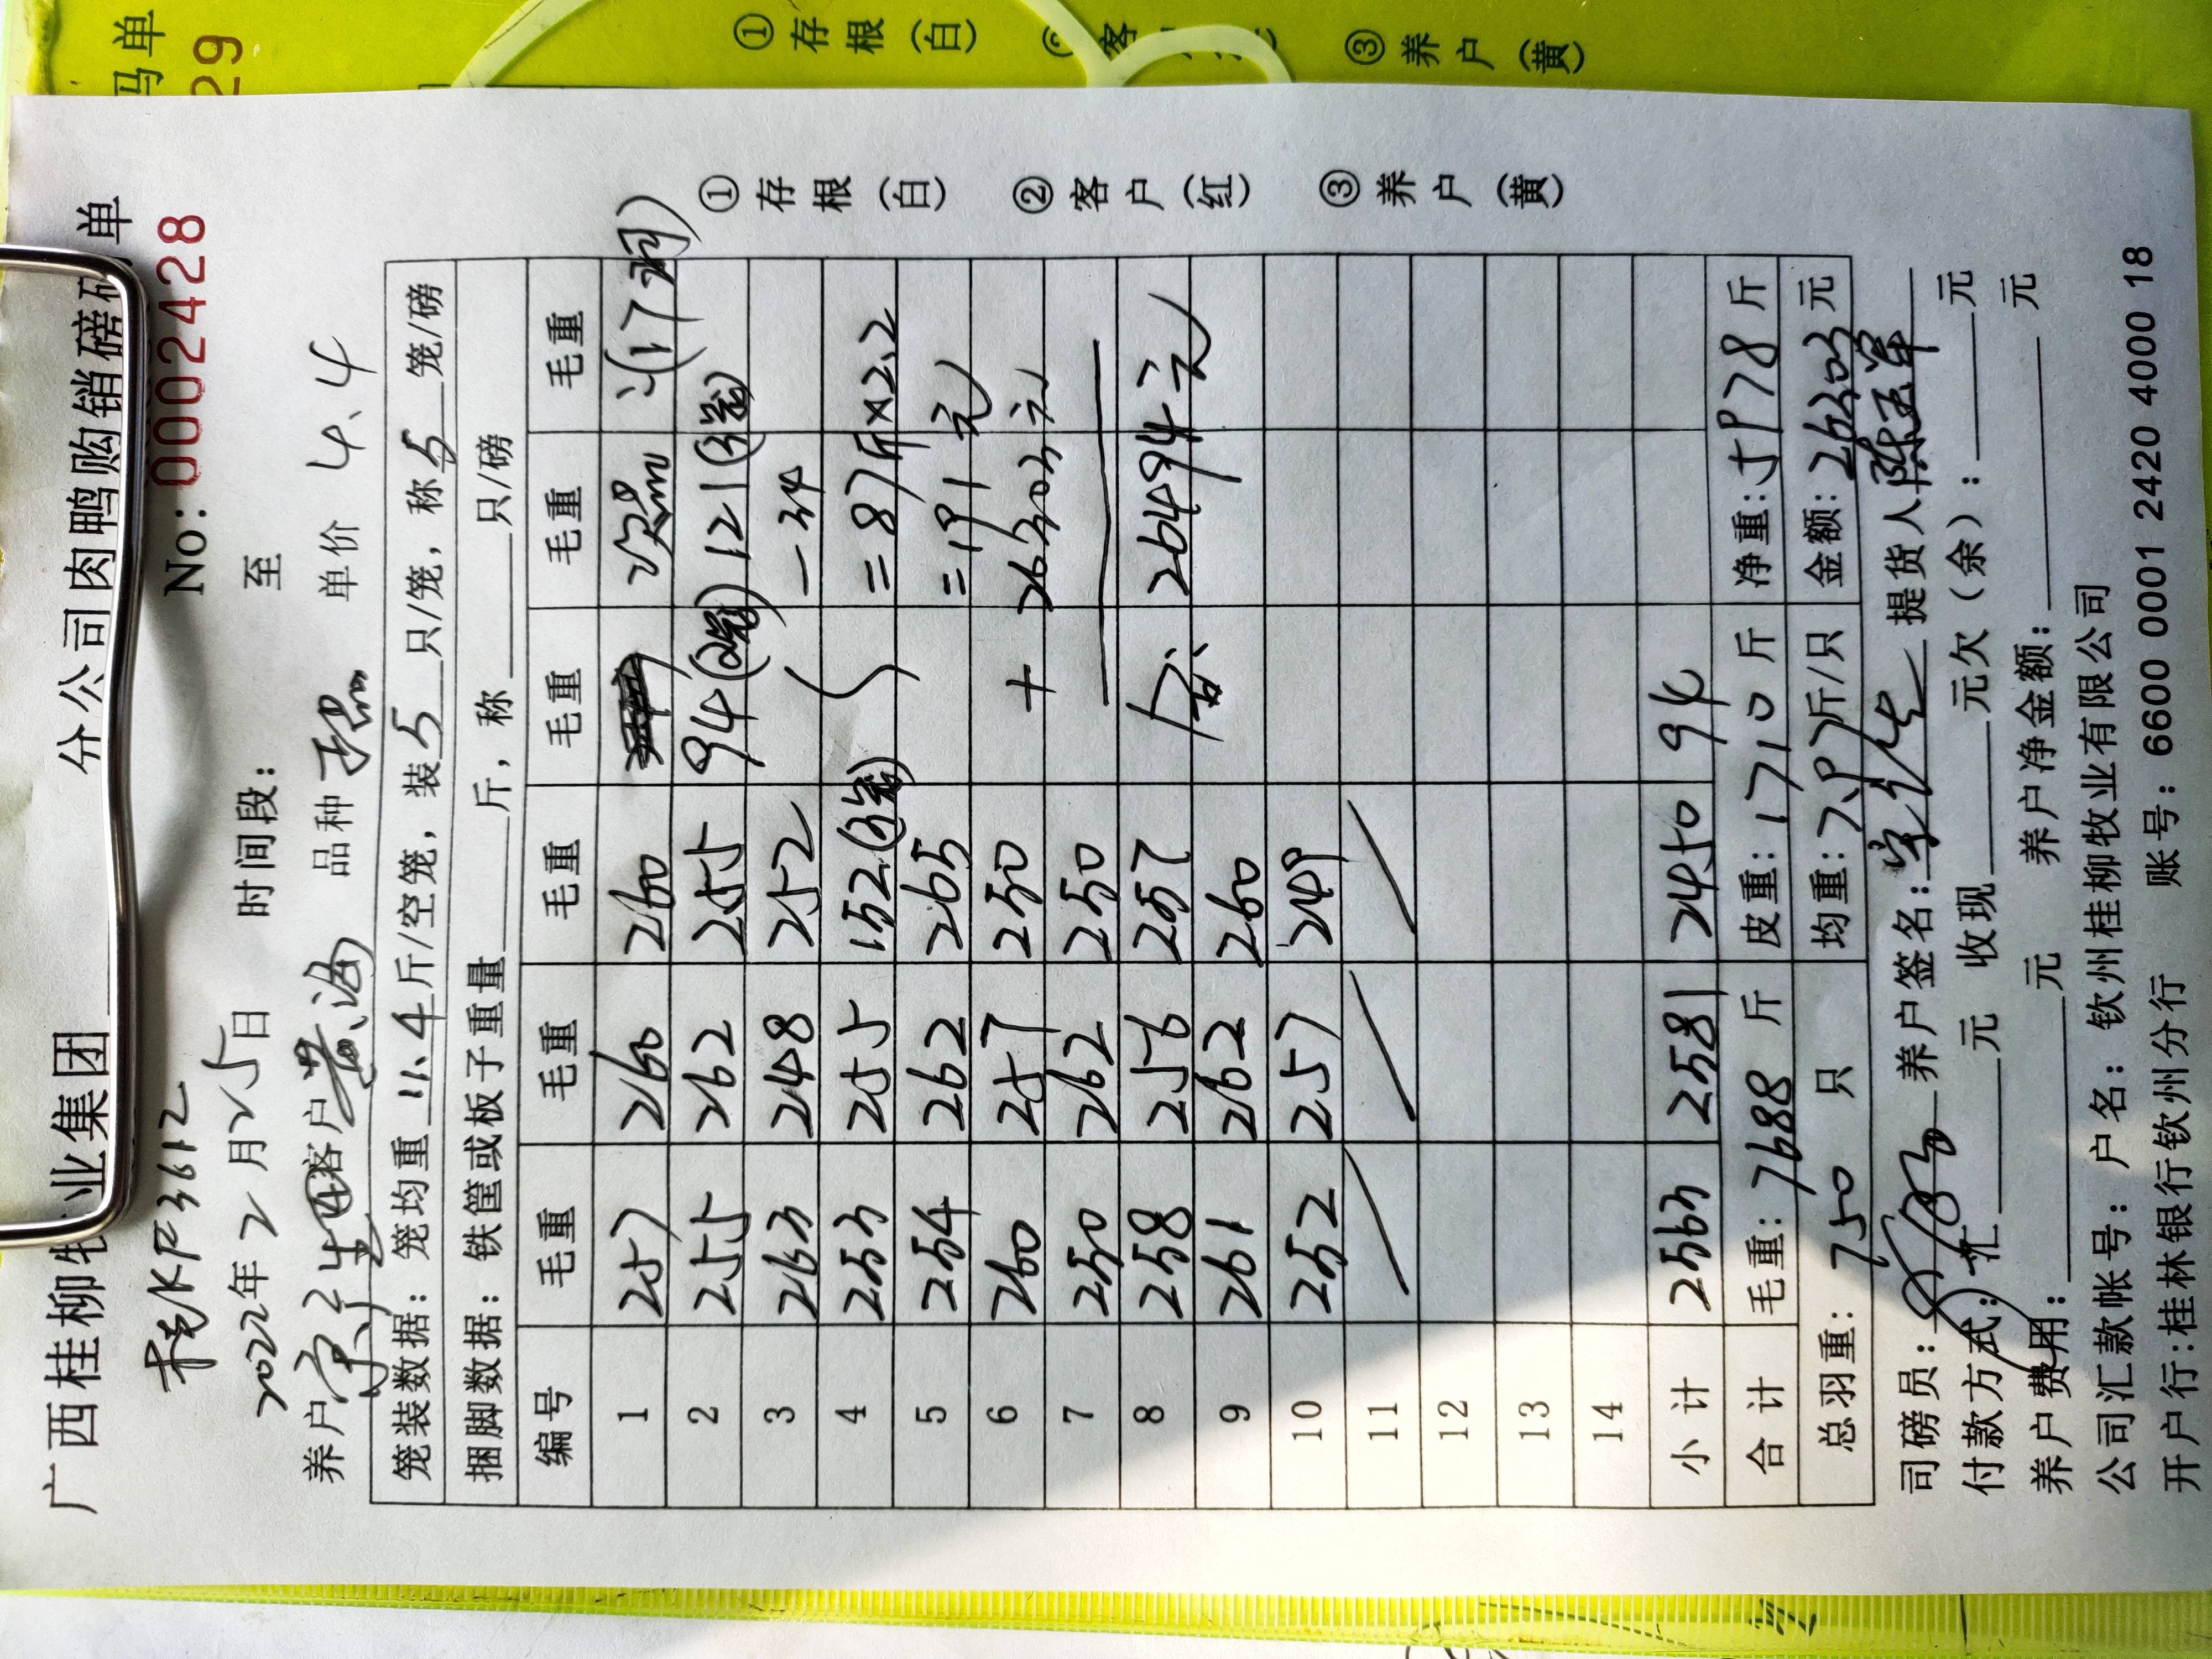 码单
29
① 存根(白) ③ 养户(黄)
广西桂柳牧业集团 分公司肉鸭购销磅码单
KP3612 No: 0002428
2022年2月25日 时间段: 至
养户 客户 黄海 品种 单价 4.4
笼装数据: 笼均重 11.4 斤/空笼, 装 5 只/笼, 称 5 笼/磅
捆脚数据: 铁筐或板子重量 斤, 称 只/磅
编号 毛重 毛重 毛重 毛重 毛重 毛重
1 257 260 260 次 (17
2 255 262 255 94(2笼) 121(3笼)
3 263 248 252 -34
4 253 255 152(3笼) =87斤×2.2
5 254 262 265 =191元
6 260 257 250 + 26303元
7 250 262 250
8 258 256 257 合: 26494元
9 261 262 260
10 252 257 249
11
12
13
14
小计 2563 2581 2450 94
合计 毛重: 7688 斤 皮重: 1710 斤 净重: 5978 斤
总羽重: 750 只 均重: 7.97 斤/只 金额: 26303 元
司磅员: 养户签名: 提货人
付款方式: 汇 元 收现 元欠(余): 元
养户费用: 元 养户净金额: 元
公司汇款帐号: 户名: 钦州桂柳牧业有限公司
开户行:桂林银行钦州分行 账号: 6600 0001 2420 4000 18
① 存根(白) ② 客户(红) ③ 养户(黄)